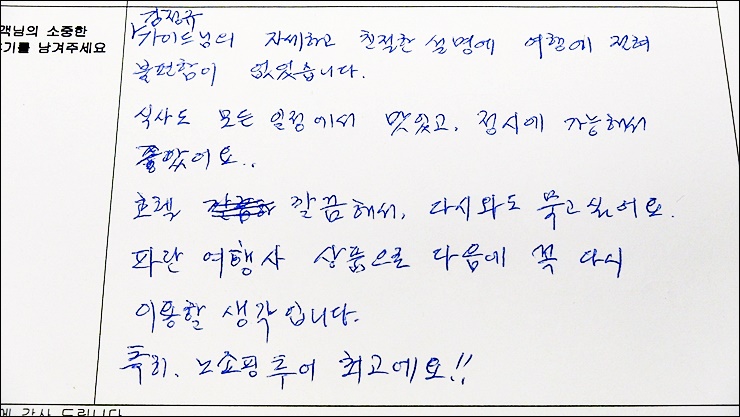 객님의 소중한
기를 남겨주세요
강진규
가이드님의 자세하고 친절한 설명에 여행에 전혀
불편함이 없었습니다.
식사도 모든 일정에서 맛있고, 정시에 가능해서
좋았어요..
호텔 깔끔해서, 다시와도 묵고싶어요.
파란 여행사 상품으로 다음에 꼭 다시
이용할 생각입니다.
특히, 노쇼핑투어 최고에요!!
감사 드립니다